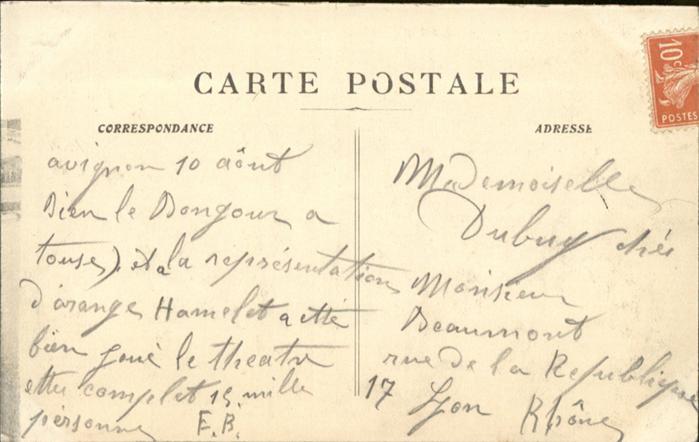 CARTE POSTALE
CORRESPONDANCE
ADRESSE
10c
POSTES
avignon 10 aôut
Bien le Bongour a
touse), et a la représentation
d'orange Hamelet a etté
bien joué le theatre
ettu complet 15 mille
personne E.B.
Mademoiselle
Dubuy chés
Monsieur
Beaumont
rue de la Republique
17 Lyon Rhône